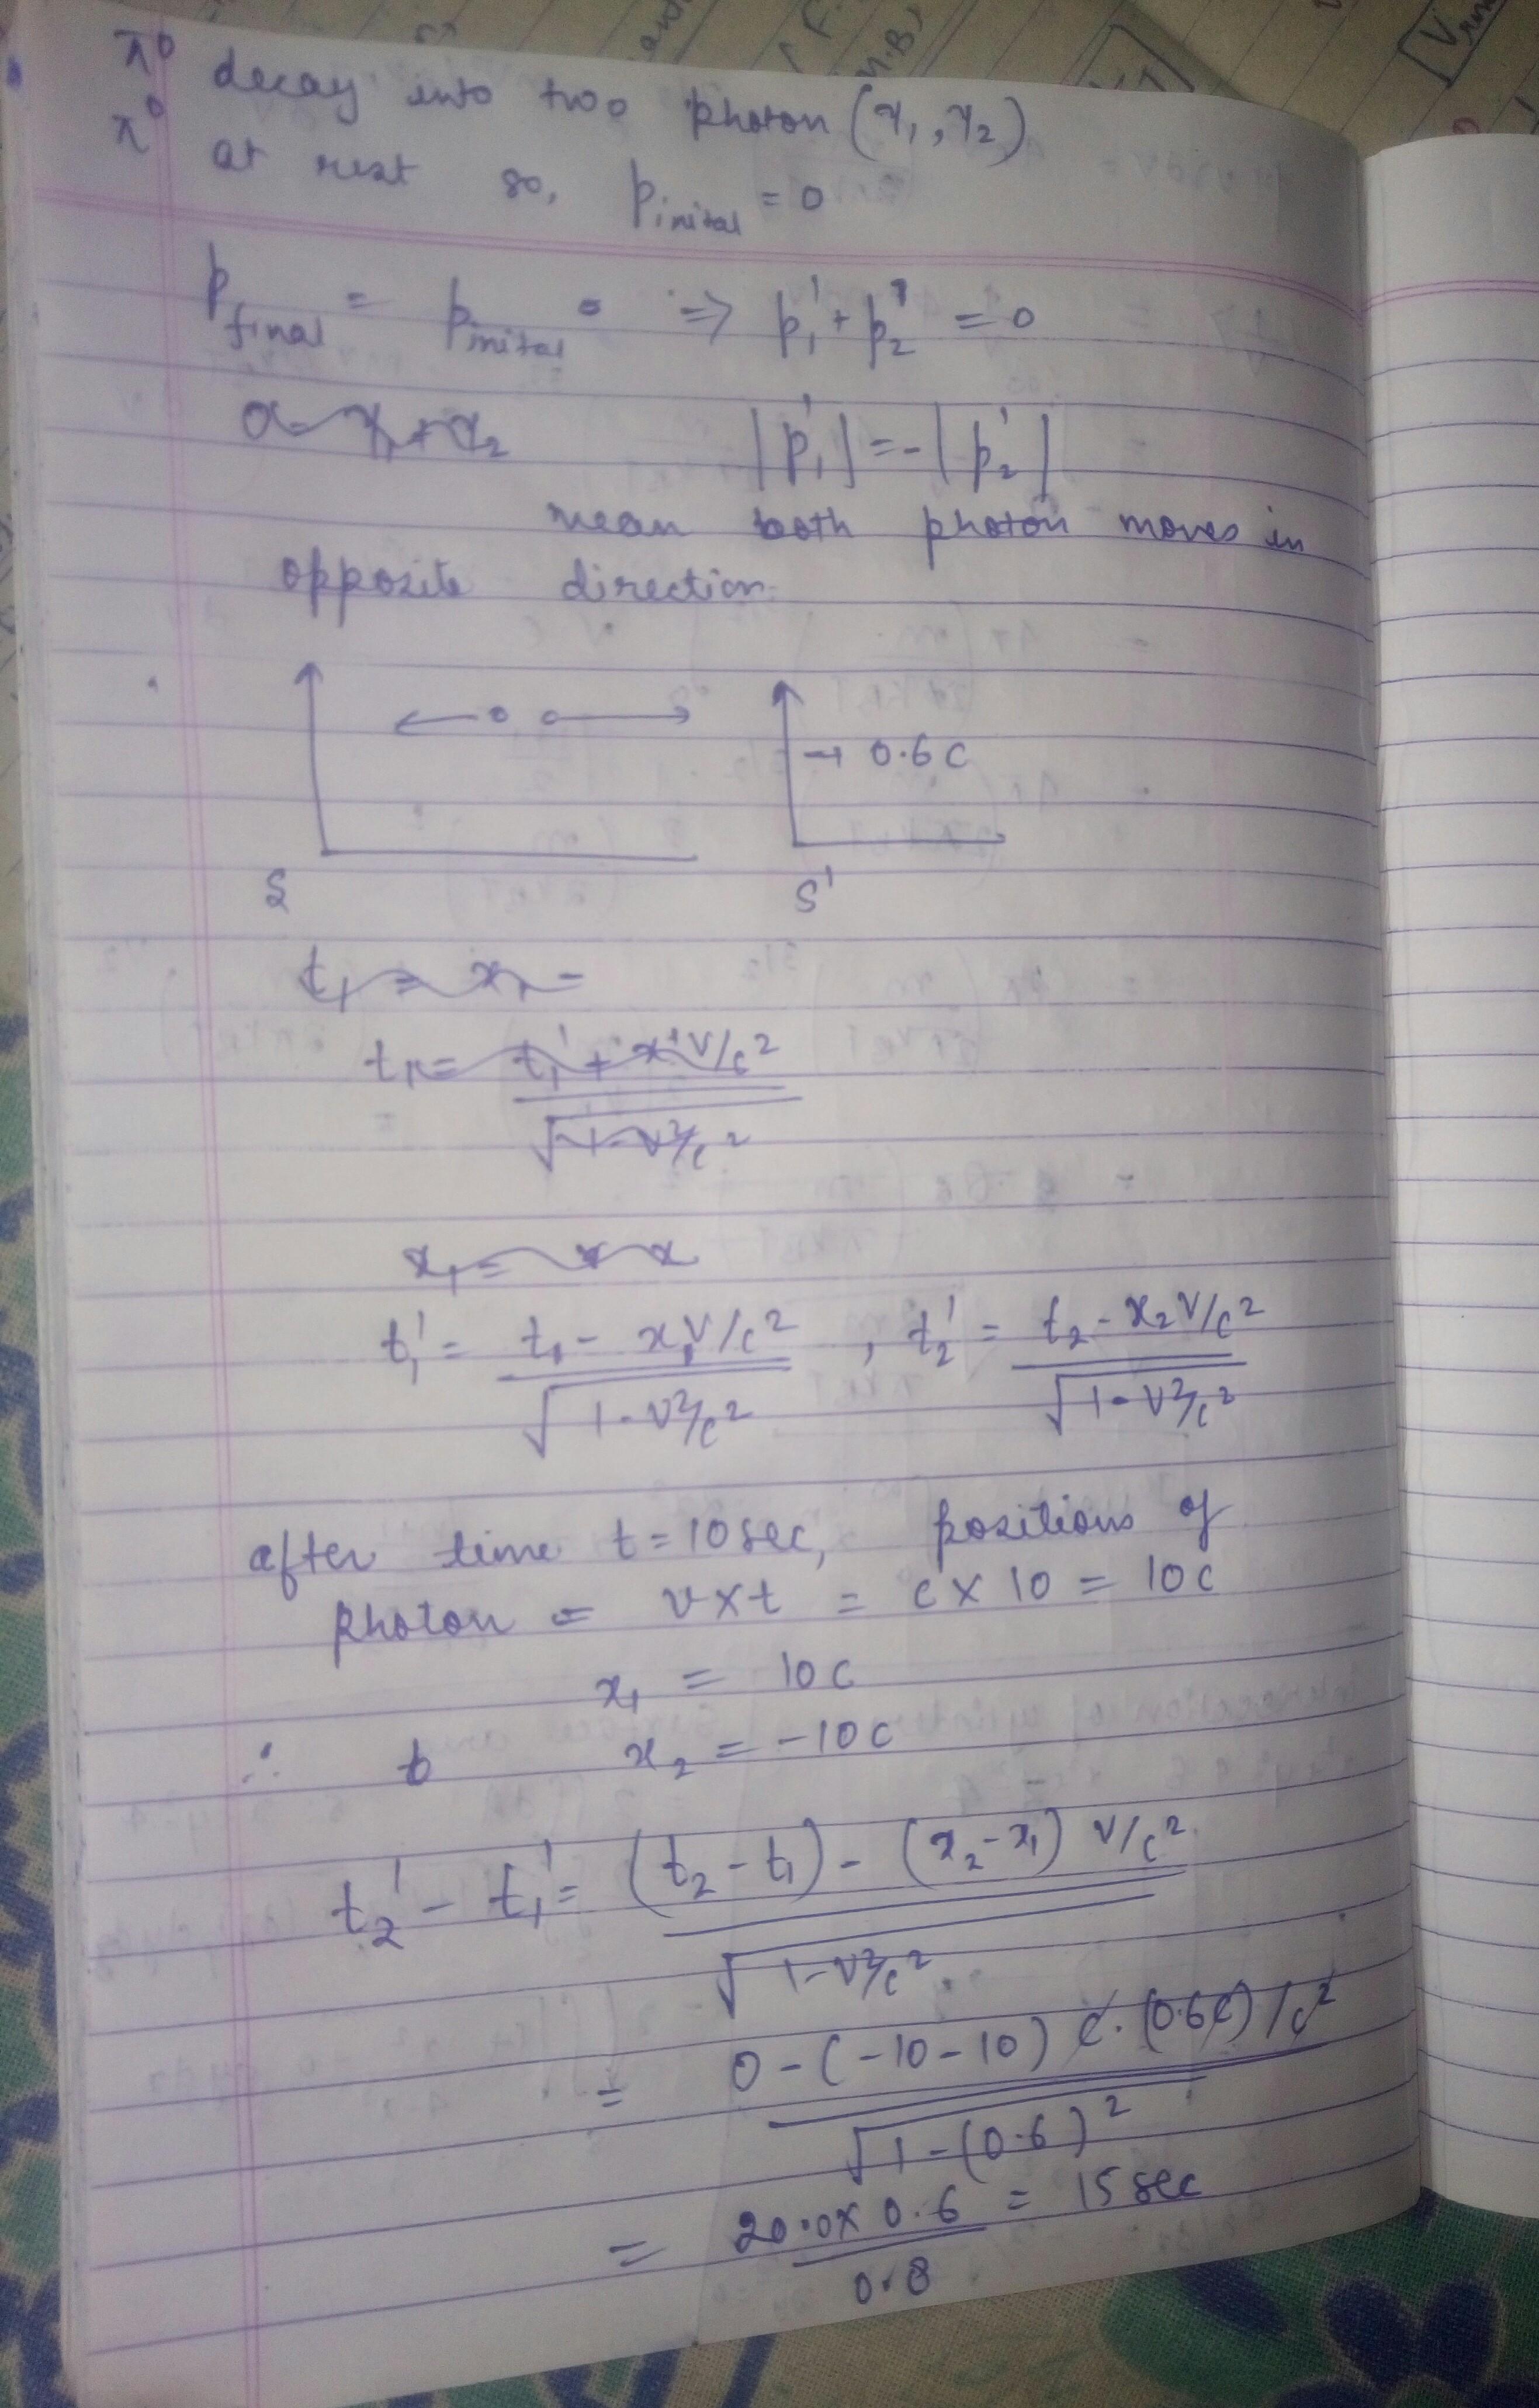 π⁰ decay into two photon (γ₁, γ₂)
π⁰ at rest so, Pinital = 0
Pfinal = Pinital = ⇒ p₁' + p₂' = 0
|p₁'| = -|p₂'|
mean both photon moves in
opposite direction
→ 0.6 c
S S'
t₁ = x₁ =
t₁ = t₁' + x'v/c² / √1-v²/c²
x₁ = x x
t₁' = t₁ - x₁v/c² / √1-v²/c² , t₂' = t₂ - x₂v/c² / √1-v²/c²
after time t = 10 sec, positions of
photon = v x t = c x 10 = 10c
x₁ = 10c
∴ t x₂ = -10c
t₂' - t₁' = (t₂ - t₁) - (x₂ - x₁) v/c² / √1-v²/c²
= 0 - (-10-10) c . (0.6c) / c² / √1-(0.6)²
= 20.0 x 0.6 / 0.8 = 15 sec